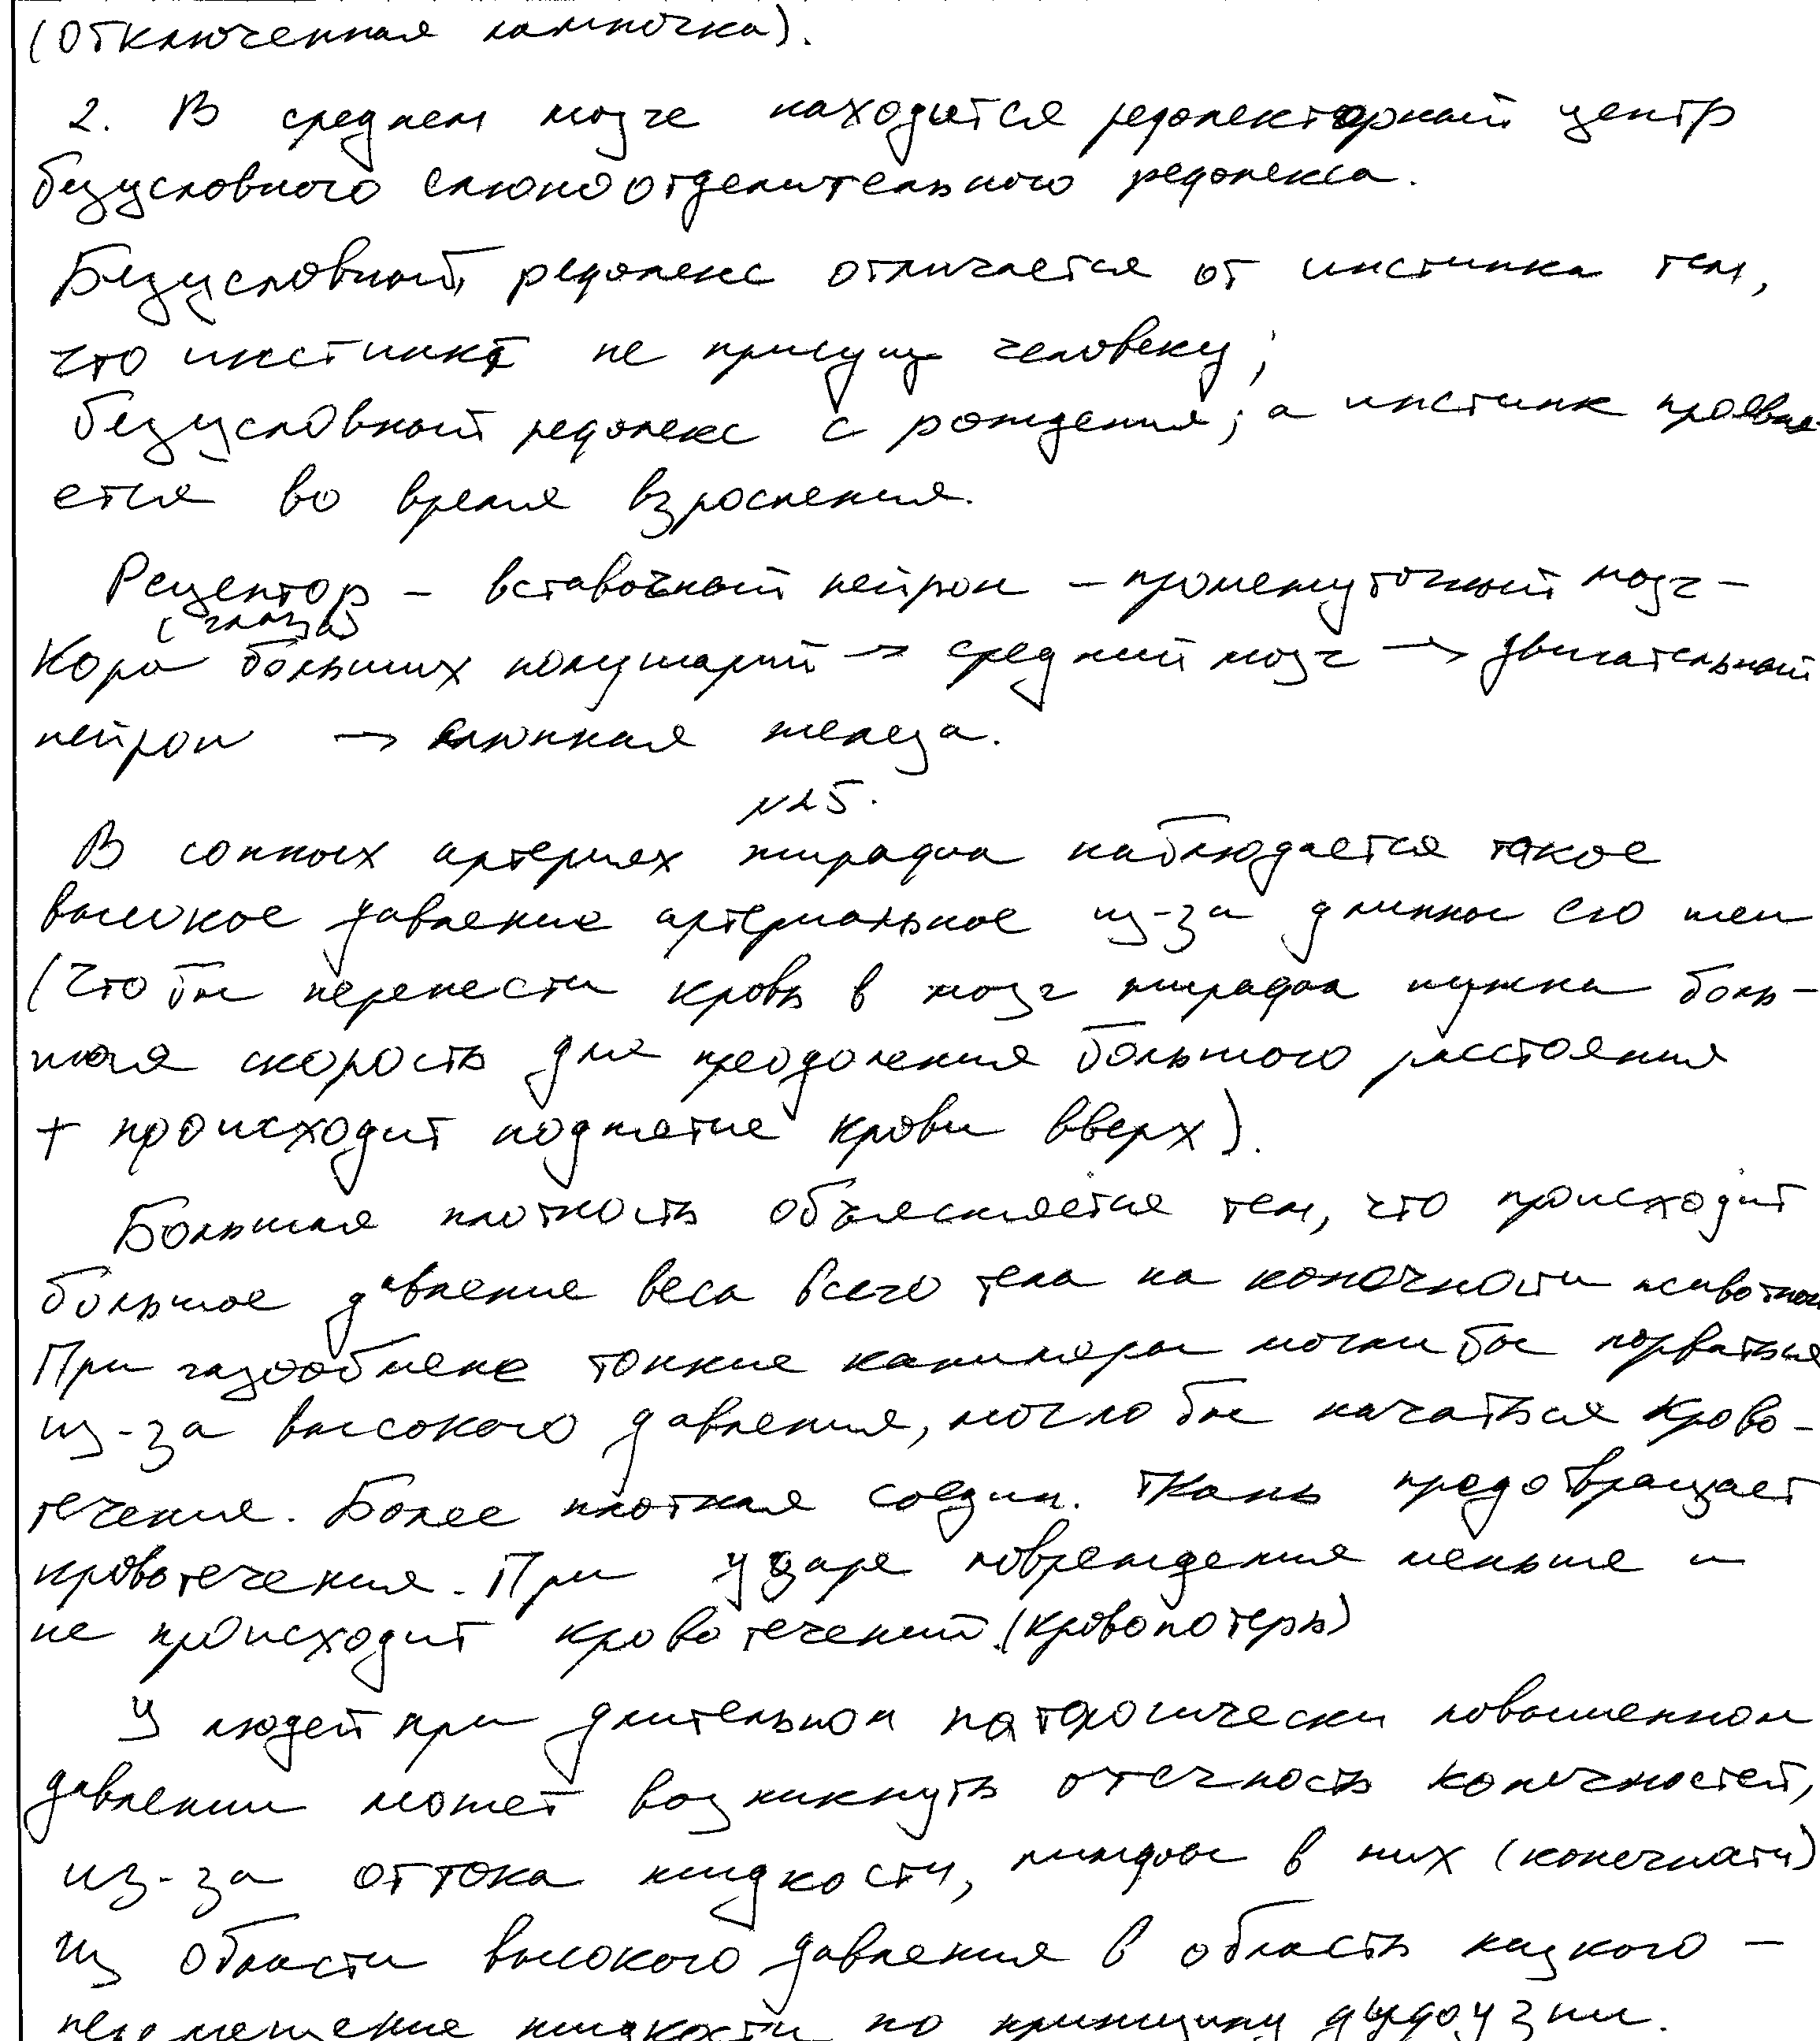 (отключенная лампочка).
2. В среднем мозге находится рефлекторный центр
безусловного слюноотделительного рефлекса.
Безусловный рефлекс отличается от инстинка тем,
что инстинкт не присущ человеку;
безусловный рефлекс с рождения; а инстинк проявля-
ется во время взросления.
Рецептор – вставочный нейрон – промежуточный мозг –
(глаза)
Кора больших полушарий → средний мозг → двигательный
нейрон → слюнная железа.
№25.
В сонных артериях жирафа наблюдается такое
высокое давление артериальное из-за длинны его шеи
(Что бы перенести кровь в мозг жирафа нужна боль-
шая скорость для преодоления большого расстояния
+ происходит поднятие крови вверх).
Большая плотность объясняется тем, что происходит
большое давление веса всего тела на конечности
При газообмене тонкие капилляры могли бы порваться
из-за высокого давления, могло бы начаться крово-
течение. Более плотная соедин. ткань предотвращает
кровотечения. При ударе повреждения меньше и
не происходит кровотечений (кровопотерь)
У людей при длительном патологически повышенном
давлении может возникнуть отечность конечностей,
из-за оттока жидкости, лимфы в них (конечности)
из области высокого давления в область низкого –
перемещение жидкости по принципу диффузии.